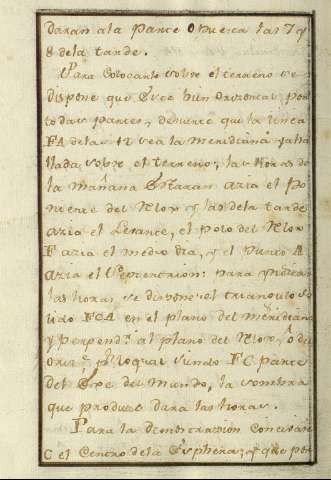 daran ala parte Opuesta las 7 y
8 dela tarde.
Para Colocarlo sobre el terreno se
dispone que este bien orizontal por
todas partes, demanera que la linea
FA delas 12 sea la meridiana ya ha
llada sobre el terreno; las Horas de
la mañana Estaran azia el Po
niente del Relox y las dela tarde
azia el Levante, el polo del Relox
F azia el medio dia, y el punto A
azia el Septentrion: para yndicar
las horas, se dispone el triangulo so
lido FCA en el plano del meridiano
y perpend.r al plano del Relox,
oriz.l Por loqual siendo FC parte
del Exe del Mundo, la sombra
que produce dara las horas.
Para la demostracion
C el Centro dela Esphera; y que por